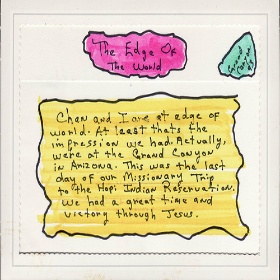 The Edge Of
The World
Chan and I are at edge of
world. At least thats the
impression we had. Actually,
were at the Grand Canyon
in Arizona. This was the last
day of our Missionary Trip
to the Hopi Indian Reservation.
We had a great time and
victory through Jesus.